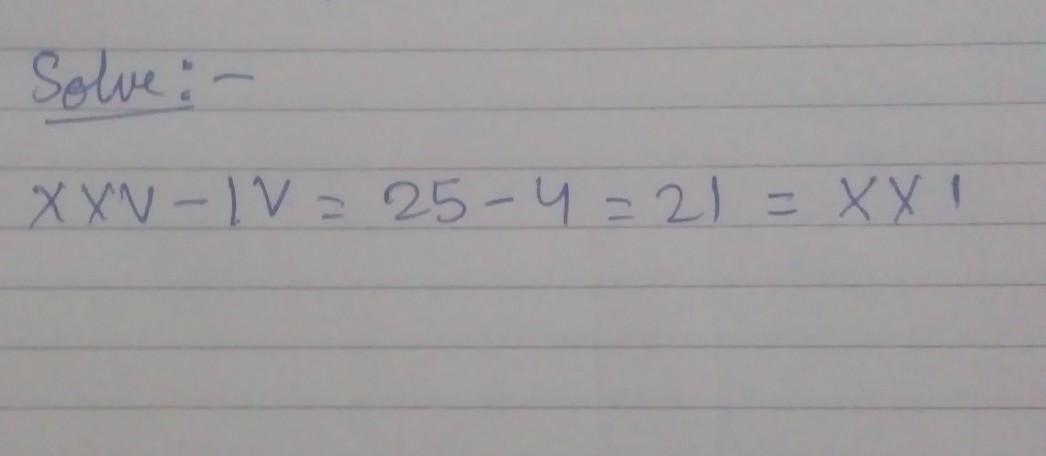 Solve:-
XXV-IV = 25-4 = 21 = XXI